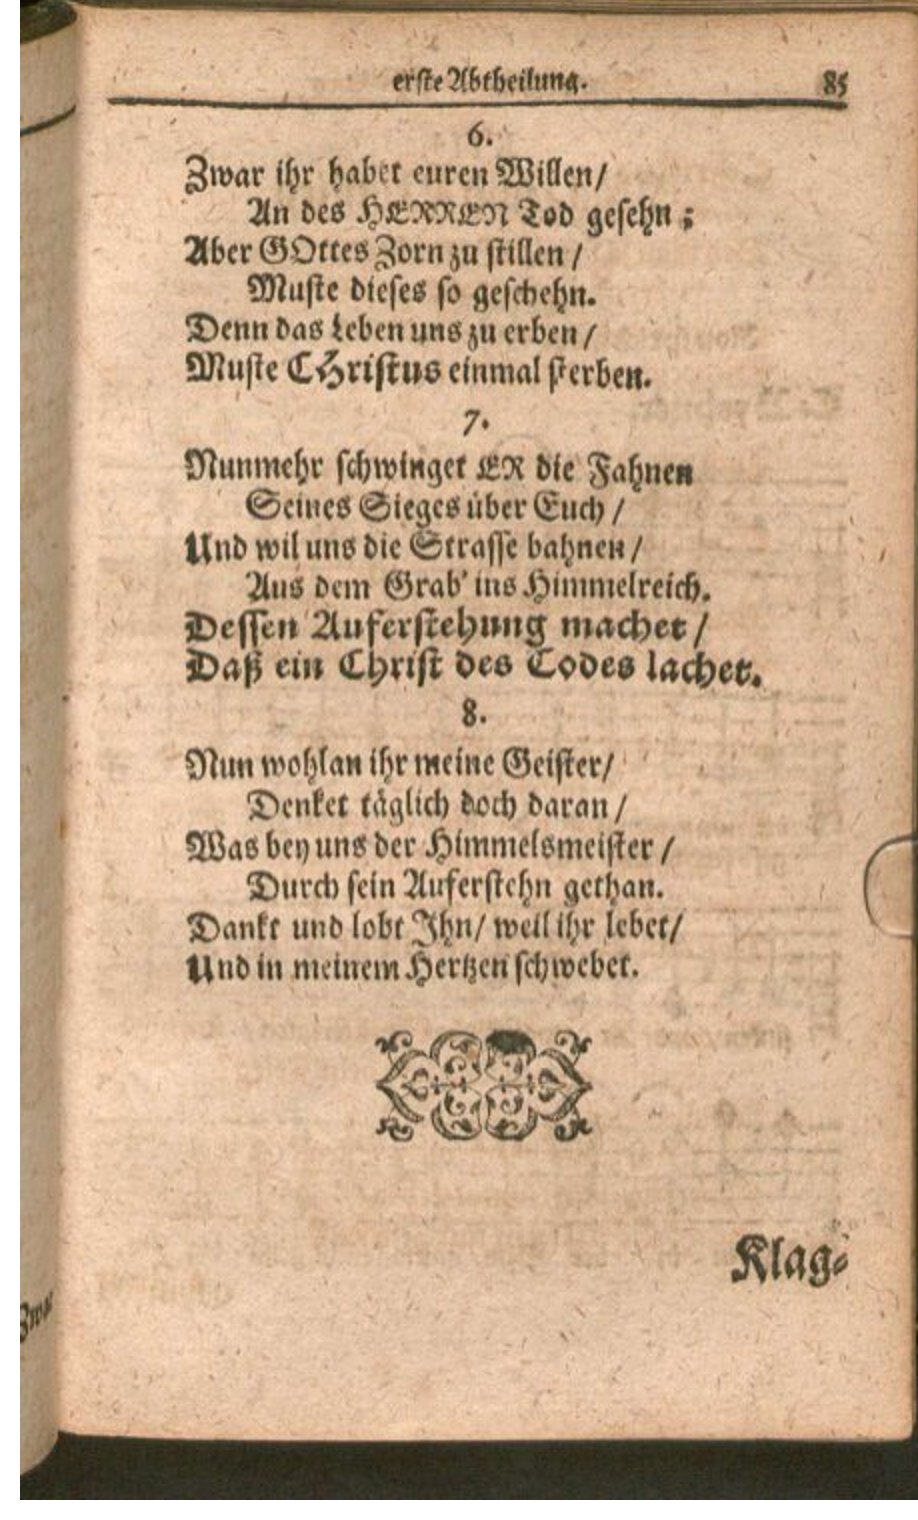 erste Abtheilung. 85
6.
Zwar ihr habet euren Willen/
An des HERREN Tod gesehn;
Aber GOttes Zorn zu stillen/
Muste dieses so geschehn.
Denn das Leben uns zu erben/
Muste CHristus einmal sterben.
7.
Nunmehr schwinget ER die Fahnen
Seines Sieges über Euch/
Und wil uns die Strasse bahnen/
Aus dem Grab' ins Himmelreich.
Dessen Auferstehung machet/
Daß ein Christ des Todes lachet.
8.
Nun wohlan ihr meine Geister/
Denket täglich doch daran/
Was bey uns der Himmelsmeister/
Durch sein Auferstehn gethan.
Dankt und lobt Ihn/ weil ihr lebet/
Und in meinem Hertzen schwebet.
Klag-
Zwar